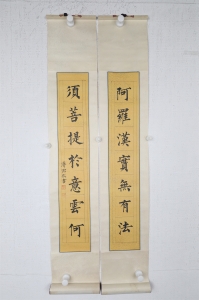 阿羅漢實無有法
須菩提於意雲何